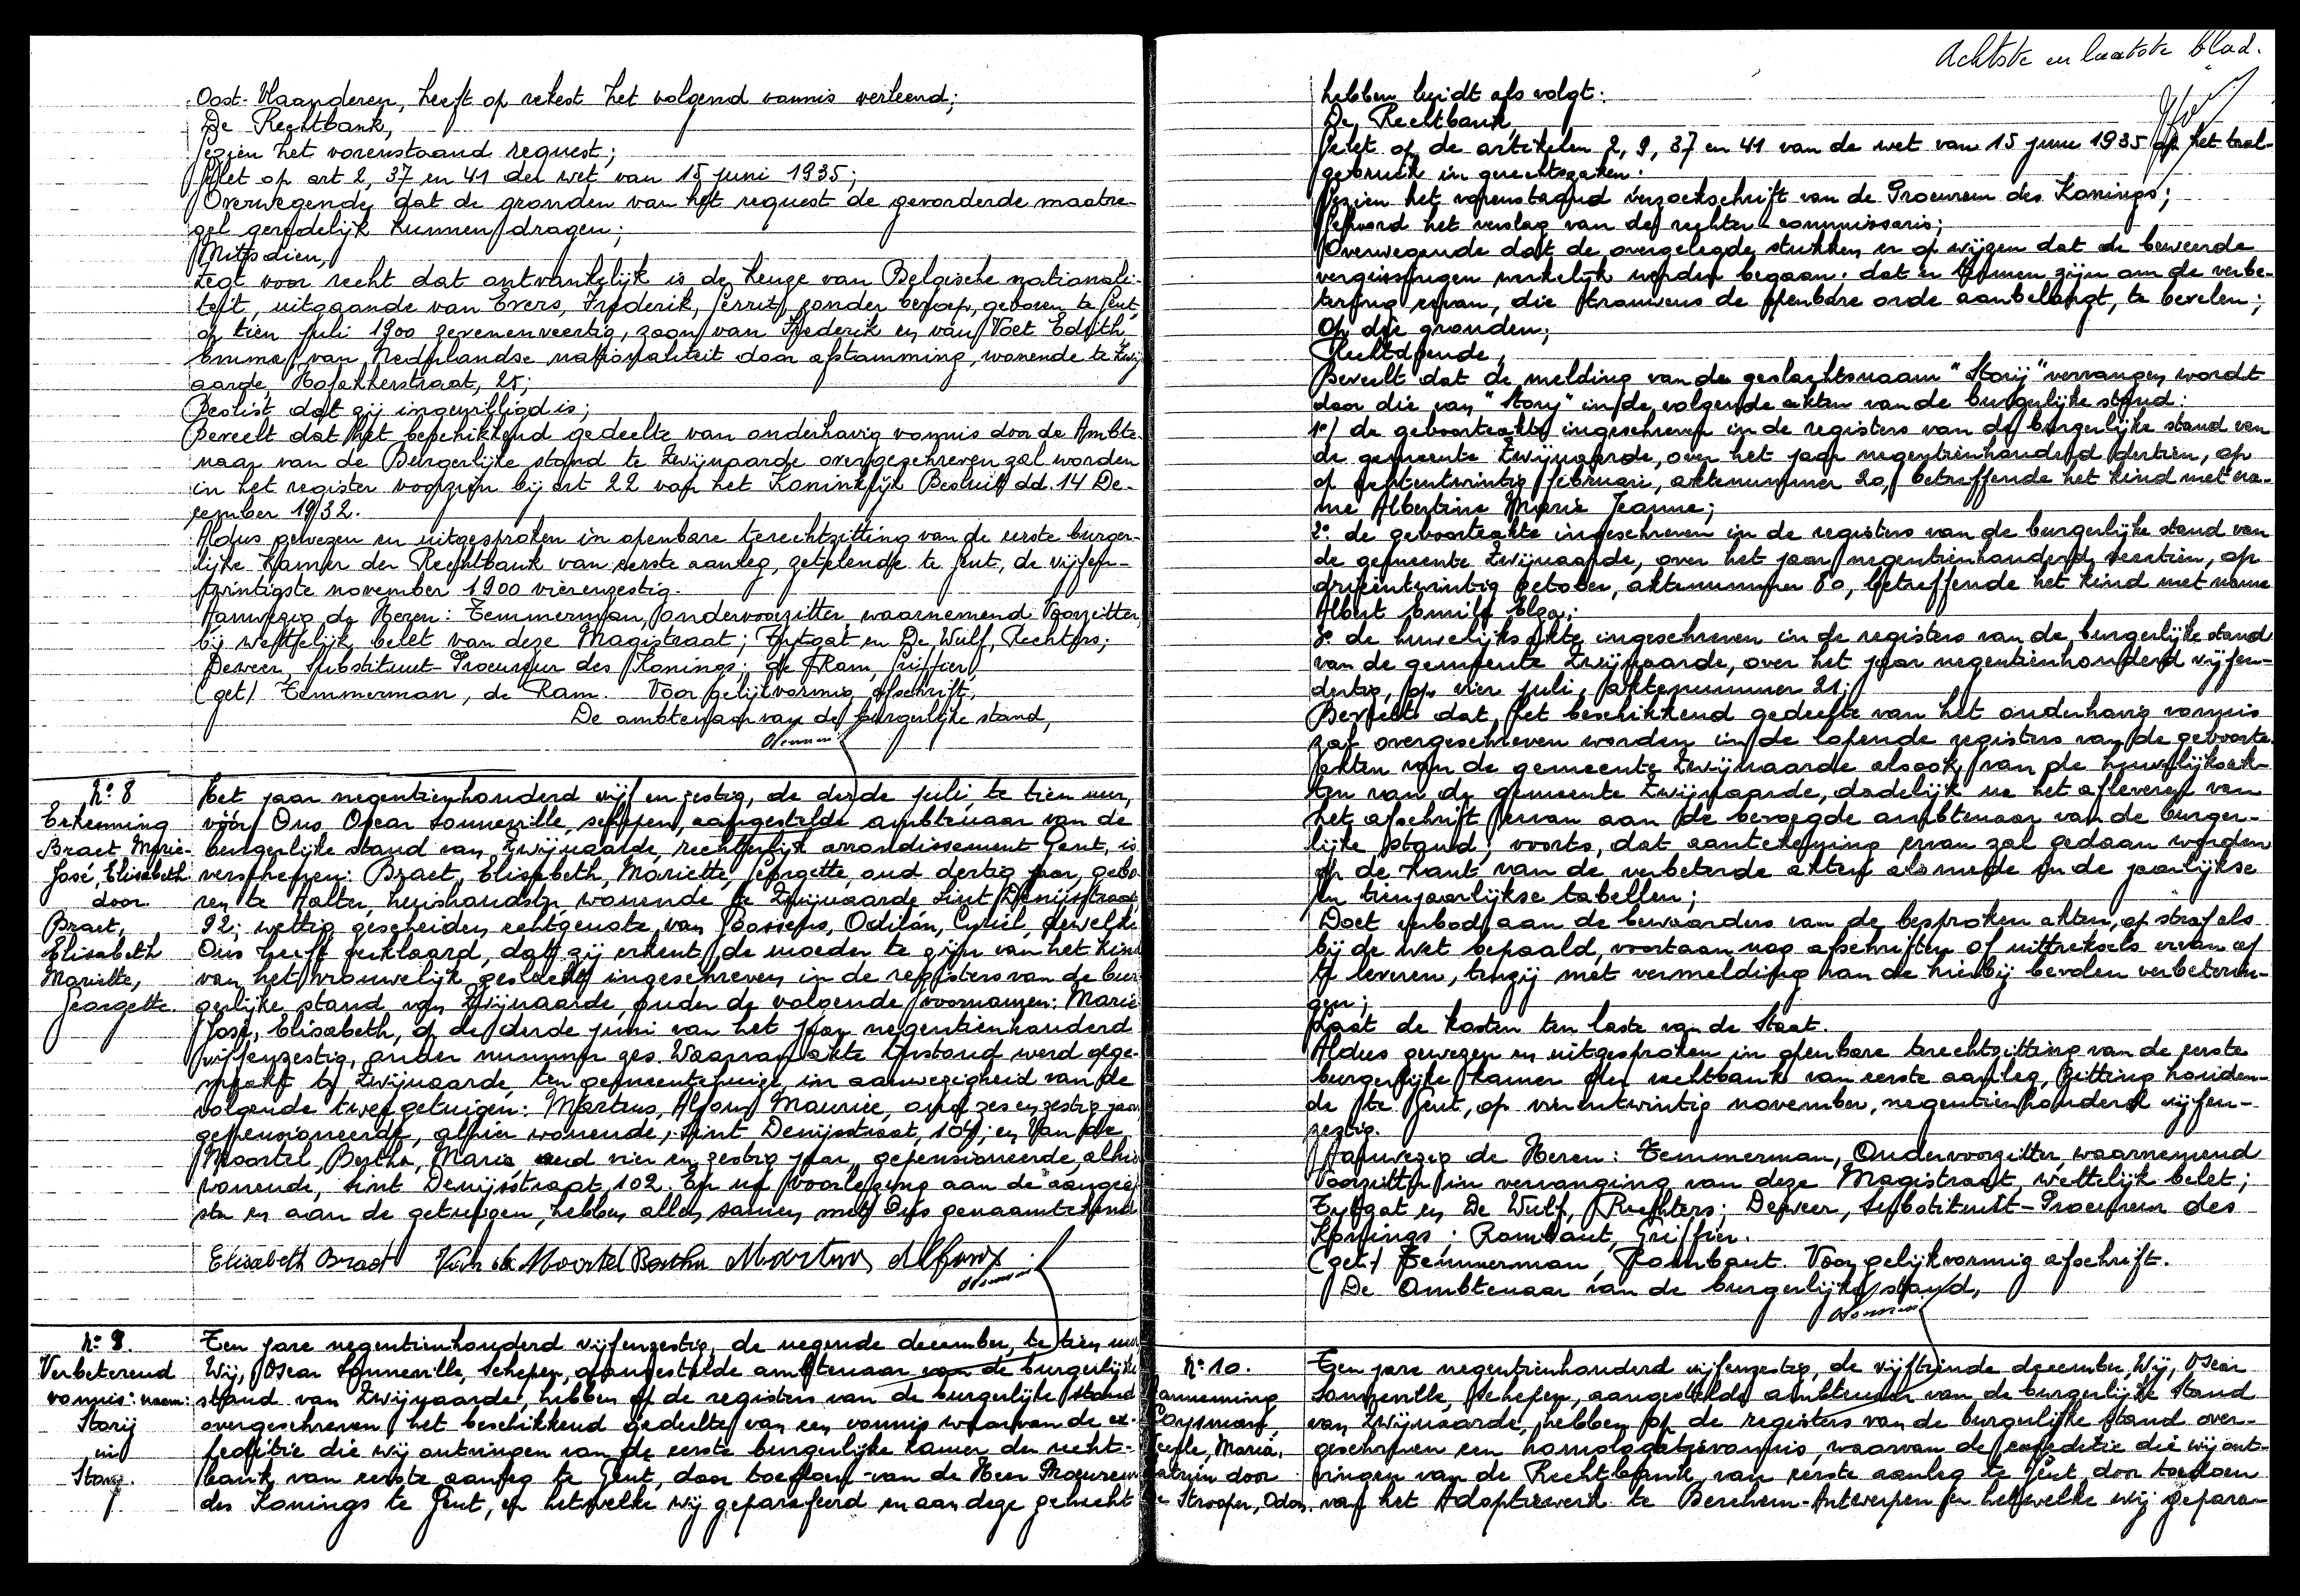 Oost-Vlaanderen, heeft op rekest het volgend vonnis verleend;
De Rechtbank,
Gezien het vorenstaand request;
Gelet op art 2, 37 en 41 der wet van 15 juni 1935;
Overwegende dat de gronden van het request de gevorderde maatre-
gel geredelijk kunnen dragen;
Mitsdien,
Zegt voor recht dat ontvankelijk is de keuze van Belgische nationali-
teit, uitgaande van Evers, Frederik, Gerrit, zonder beroep, geboren te Gent,
op tien juli 1900 zevenenveertig, zoon van Frederik en van Voet Edith
Emma, van Nederlandse nationaliteit door afstamming, wonende te Zwij
aarde, Hofakkerstraat, 25;
Beslist dat zij ingewilligd is;
Beveelt dat het beschikkend gedeelte van onderhavig vonnis door de Ambte-
naar van de Burgerlijke stand te Zwijnaarde overgeschreven zal worden
in het register voorzien bij art 22 van het Koninklijk Besluit dd. 14 De-
cember 1932.
Aldus gewezen en uitgesproken in openbare terechtzitting van de eerste burger-
lijke Kamer der Rechtbank van eerste aanleg, zetelende te Gent, de vijfen-
twintigste november 1900 vierenzestig.
Aanwezig de Heren: Temmerman, ondervoorzitter waarnemend Voorzitter,
bij wettelijk belet van deze Magistraat; Tytgat en De Wulf, Rechters;
Deweer, Substituut-Procureur des Konings; de Ram, Griffier,
(get) Temmerman, de Ram. Voor gelijkvormig afschrift,
De ambtenaar van de burgerlijke stand,
N:8
Erkenning
Braet Marie-
José, Elisabeth
door
Braet,
Elisabeth
Mariette,
Georgette.
Het jaar negentienhonderd vijf en zestig, de derde juli, te tien uur,
vóór Ons Oscar Sonneville, schepen, aangestelde ambtenaar van de
burgerlijke stand van Zwijnaarde, rechterlijk arrondissement Gent, is
verschenen: Braet, Elisabeth, Mariette, Georgette, oud dertig jaar, gebo
ren te Aalter, huishoudster, wonende te Zwijnaarde Sint Denijsstraat,
92; wettig gescheiden echtgenote van Goossens, Odilon, Cyriel, dewelke
Ons heeft verklaard, dat zij erkent de moeder te zijn van het kind
van het vrouwelijk geslacht ingeschreven in de registers van de bur
gerlijke stand van Zwijnaarde, onder de volgende voornamen: Marie
José, Elisabeth, op de derde juni van het jaar negentienhonderd
vijfenzestig, onder nummer zes. Waarvan akte terstond werd opge-
maakt te Zwijnaarde, ten gemeentehuize, in aanwezigheid van de
volgende twee getuigen: Martens, Alfons Maurice, oud zes en zestig jaar,
gepensioneerde, alhier wonende, Sint Denijsstraat, 104; en Van de
Moortel, Bertha, Maria, oud vier en zestig jaar, gepensioneerde, alhier
wonende, Sint Denijsstraat 102. En na voorlezing aan de aangee
ster en aan de getuigen, hebben allen samen met Ons genaamtekend
Elisabeth Braet Van de Moortel Bertha Martens Alfons
N:9.
Verbeterend
vonnis: naam:
Storij
in
Story.
Ten jare negentienhonderd vijfenzestig, de negende december, te tien uur
Wij, Oscar Sonneville, Schepen, aangestelde ambtenaar van de burgerlijke
stand van Zwijnaarde, hebben op de registers van de burgerlijke stand
overgeschreven het beschikkend gedeelte van een vonnis waarvan de ex-
peditie die wij ontvingen van de eerste burgerlijke Kamer der recht-
bank van eerste aanleg te Gent, door toedoen van de Heer Procureur
des Konings te Gent, en hetwelke wij geparafeerd en aan deze gehecht
Achtste en laatste blad.
hebben luidt als volgt:
De Rechtbank
Gelet op de artikelen 2, 9, 37 en 41 van de wet van 15 juni 1935 op het taal-
gebruik in gerechtszaken.
Gezien het vorenstaand verzoekschrift van de Procureur des Konings;
Gehoord het verslag van de rechter-commissaris;
Overwegende dat de overgelegde stukken er op wijzen dat de beweerde
vergissingen werkelijk werden begaan; dat er termen zijn om de verbe-
tering ervan, die trouwens de openbare orde aanbelangt, te bevelen;
Op die gronden;
Rechtdoende,
Beveelt dat de melding van de geslachtsnaam "Storij" vervangen wordt
door die van "Story" in de volgende akten van de burgerlijke stand:
1º/ de geboorteakte ingeschreven in de registers van de burgerlijke stand van
de gemeente Zwijnaarde, over het jaar negentienhonderd dertien, op
op achtentwintig februari, aktenummer 20, betreffende het kind met na-
me Albertine Marie Jeanne;
2º de geboorteakte ingeschreven in de registers van de burgerlijke stand van
de gemeente Zwijnaarde, over het jaar negentienhonderd veertien, op
drieëntwintig october, aktenummer 80, betreffende het kind met name
Albert Emile Elza;
3º de huwelijksakte ingeschreven in de registers van de burgerlijke stand
van de gemeente Zwijnaarde, over het jaar negentienhonderd vijfen-
dertig, op vier juli, aktenummer 21;
Beveelt dat het beschikkend gedeelte van het onderhavig vonnis
zal overgeschreven worden in de lopende registers van de geboorte-
akten van de gemeente Zwijnaarde alsook van de huwelijksak-
ten van de gemeente Zwijnaarde, dadelijk na het afleveren van
het afschrift ervan aan de bevoegde ambtenaar van de burger-
lijke stand; voorts, dat aantekening ervan zal gedaan worden
op de kant van de verbeterde akten alsmede in de jaarlijkse
en tienjaarlijkse tabellen;
Doet verbod aan de bewaarders van de besproken akten, op straf als
bij de wet bepaald, voortaan nog afschriften of uittreksels ervan af
te leveren, tenzij met vermelding van de hierbij bevolen verbeterin-
gen;
Laat de kosten ten laste van de Staat.
Aldus gewezen en uitgesproken in openbare terechtzitting van de eerste
burgerlijke Kamer der rechtbank van eerste aanleg, zitting houden-
de te Gent, op vierentwintig november, negentienhonderd vijfen-
zestig.
Aanwezig de Heren: Temmerman, Ondervoorzitter, waarnemend
Voorzitter in vervanging van deze Magistraat, wettelijk belet;
Tytgat en De Wulf, Rechters; Deweer, Substituut-Procureur des
Konings; Rombaut, Griffier.
(get.) Temmerman, Rombaut. Voor gelijkvormig afschrift.
De Ambtenaar van de burgerlijke stand,
N:10.
Aanneming
Coysman,
Maria,
door
Strooper, Odon.
Ten jare negentienhonderd vijfenzestig, de vijftiende december, Wij, Oscar
Sonneville, Schepen, aangestelde ambtenaar van de burgerlijke Stand
van Zwijnaarde, hebben op de registers van de burgerlijke stand over-
geschreven een homologatievonnis, waarvan de expeditie die wij ont-
vingen van de Rechtbank van eerste aanleg te Gent door toedoen
van het Adoptiewerk te Berchem-Antwerpen en hetwelke wij gepara-